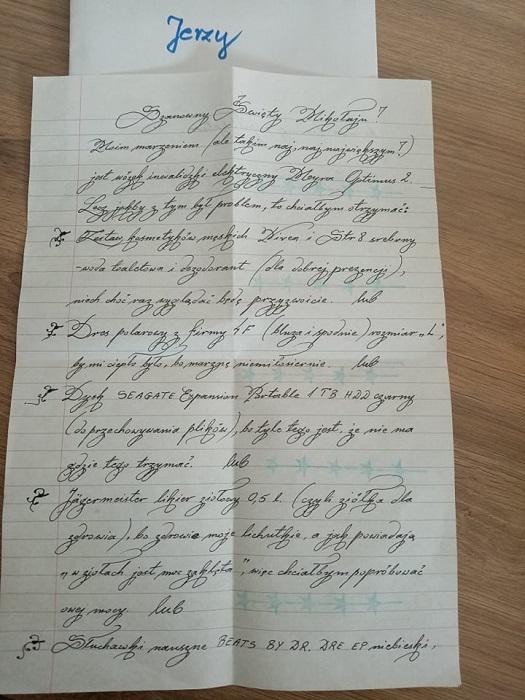 Jerzy
Szanowny Święty Mikołaju!
Moim marzeniem (ale takim naj, naj największym!)
jest wózek inwalidzki elektryczny Meyra Optimus 2.
Lecz jakby z tym był problem, to chciałbym otrzymać:
Zestaw kosmetyków męskich Nivea i Str8 srebrny
-woda toaletowa i dezodorant (dla dobrej prezencji),
niech choć raz wyglądać będę przyzwoicie. lub
Dres polarowy z firmy 4F (bluza i spodnie) rozmiar „L",
by mi ciepło było, bo marznę niemiłosiernie. lub
Dysk SEAGATE Expansion Portable 1 TB HDD czarny
(do przechowywania plików), bo tyle tego jest, że nie ma
gdzie tego trzymać. lub
Jägermeister likier ziołowy 0,5 l. (czyli ziółka dla
zdrowia), bo zdrowie moje lichutkie, a jak powiadają
„w ziołach jest moc zaklęta", więc chciałbym popróbować
owej mocy. lub
Słuchawki nauszne BEATS BY DR. DRE EP niebieski,